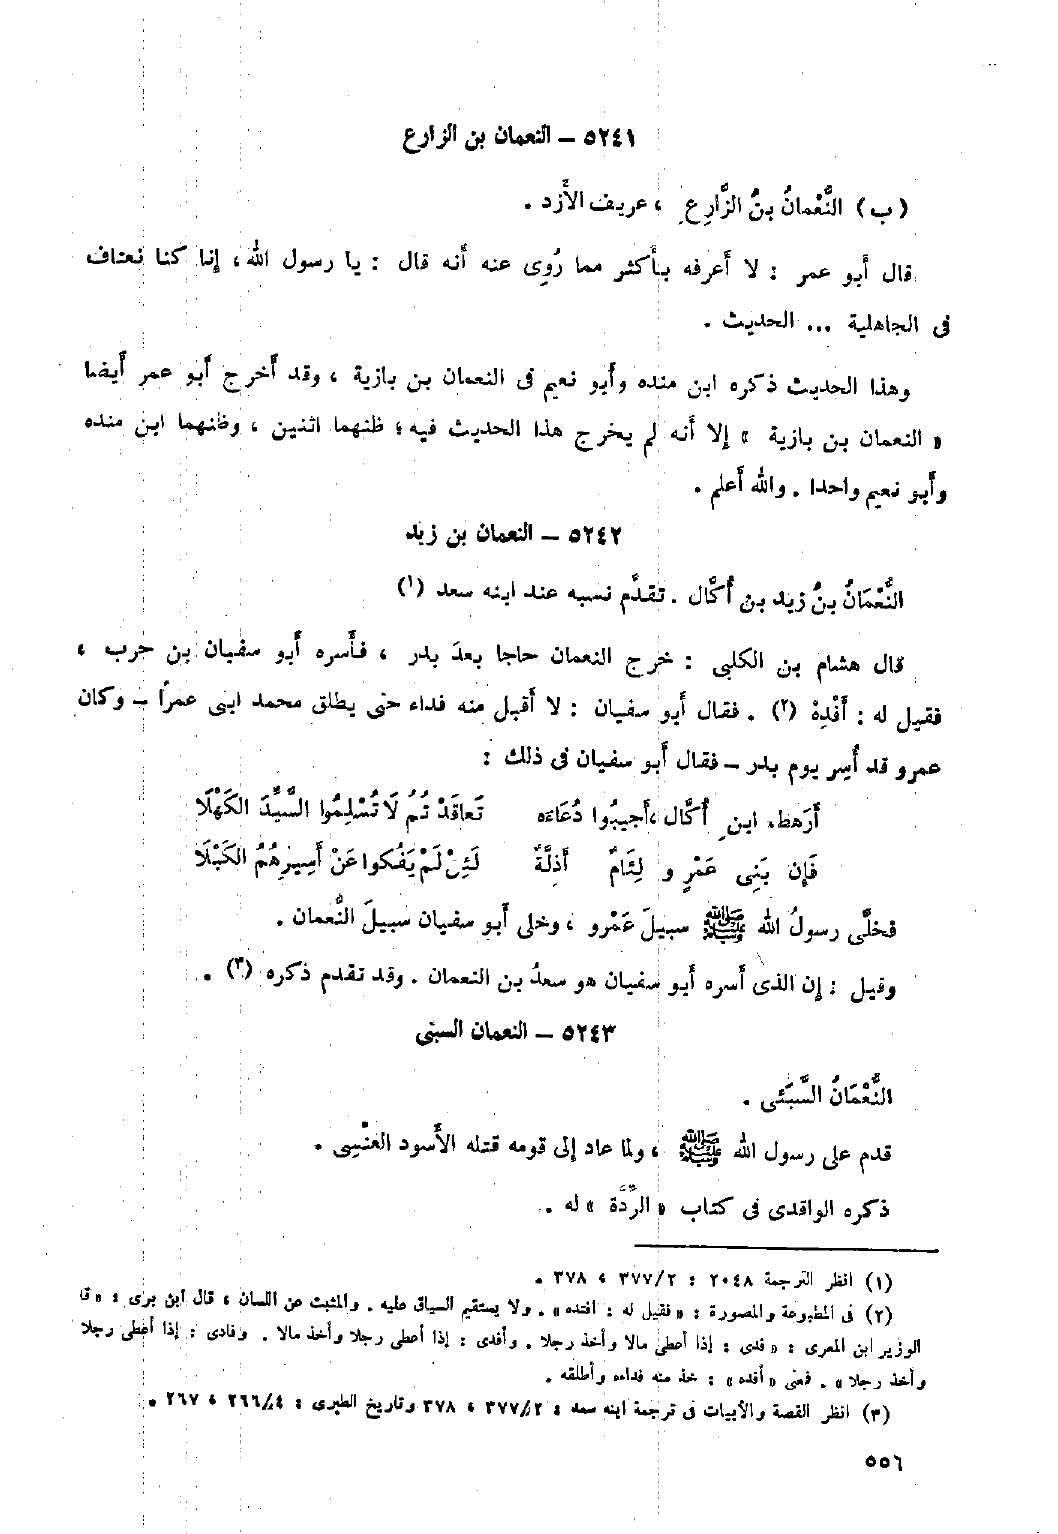 ٥٢٤١ – النعمان بن الزارع
(ب) النُّعْمانُ بنُ الزَّارِعِ ، عريف الأَزد .
قال أَبو عمر : لا أَعرفه بأَكثر مما رُوِى عنه أَنه قال : يا رسول الله ، إنا كنا نعتاف
فى الجاهلية ... الحديث .
وهذا الحديث ذكره ابن منده وأَبو نعيم فى النعمان بن بازية ، وقد أَخرج أَبو عمر أَيضا
« النعمان بن بازية » إلا أَنه لم يخرج هذا الحديث فيه ؛ ظنهما اثنين ، وظنهما ابن منده
وأَبو نعيم واحدا . والله أَعلم .
٥٢٤٢ – النعمان بن زيد
النُّعْمَانُ بنُ زيد بن أُكَّال . تقدَّم نسبه عند ابنه سعد (١)
قال هشام بن الكلبى : خرج النعمان حاجا بعدَ بدر ، فأَسره أَبو سفيان بن حرب ،
فقيل له : أَفْدِهْ (٢) . فقال أَبو سفيان : لا أَقبل منه فداء حتى يطلق محمد ابنى عمرًا – وكان
عمرو قد أُسِر يوم بدر – فقال أَبو سفيان فى ذلك :
أَرَهطَ ابنِ أُكَّال ، أَجيبُوا دُعَاءَه تَعاقَدْتُمُ لَا تُسْلِمُوا السَّيِّدَ الكَهْلَا
فَإِن بَنِى عَمْرٍو لِئَامٌ أَذلَّةٌ لَئِنْ لَمْ يَفُكوا عَنْ أَسِيرِهُمُ الكَبْلَا
فخلَّى رسولُ الله ﷺ سبيلَ عَمْرو ، وخلى أَبو سفيان سبيلَ النُّعمان .
وقيل : إن الذى أَسره أَبو سفيان هو سعدُ بن النعمان . وقد تقدم ذكره (٣) .
٥٢٤٣ – النعمان السبئى
النُّعْمَانُ السَّبَئى .
قدم على رسول الله ﷺ ، ولما عاد إلى قومه قتله الأَسود العَنْسِى .
ذكره الواقدى فى كتاب « الرِّدَّة » له .
(١) انظر الترجمة ٢٠٤٨ : ٣٧٧/٢ ، ٣٧٨ .
(٢) فى المطبوعة والمصورة : « فقيل له : افتده » . ولا يستقيم السياق عليه . والمثبت عن اللسان ، قال ابن برى : « قا
الوزير ابن المعرى : « فدى : إذا أعطى مالا وأخذ رجلا . وأفدى : إذا أعطى رجلا وأخذ مالا . وفادى : إذا أعطى رجلا
وأخذ رجلا » . فمعنى « أفده » : خذ منه فداءه وأطلقه .
(٣) انظر القصة والأبيات فى ترجمة ابنه سعد : ٣٧٧/٢ ، ٣٧٨ وتاريخ الطبرى : ٢٦٦/٤ ، ٢٦٧ .
٥٥٦